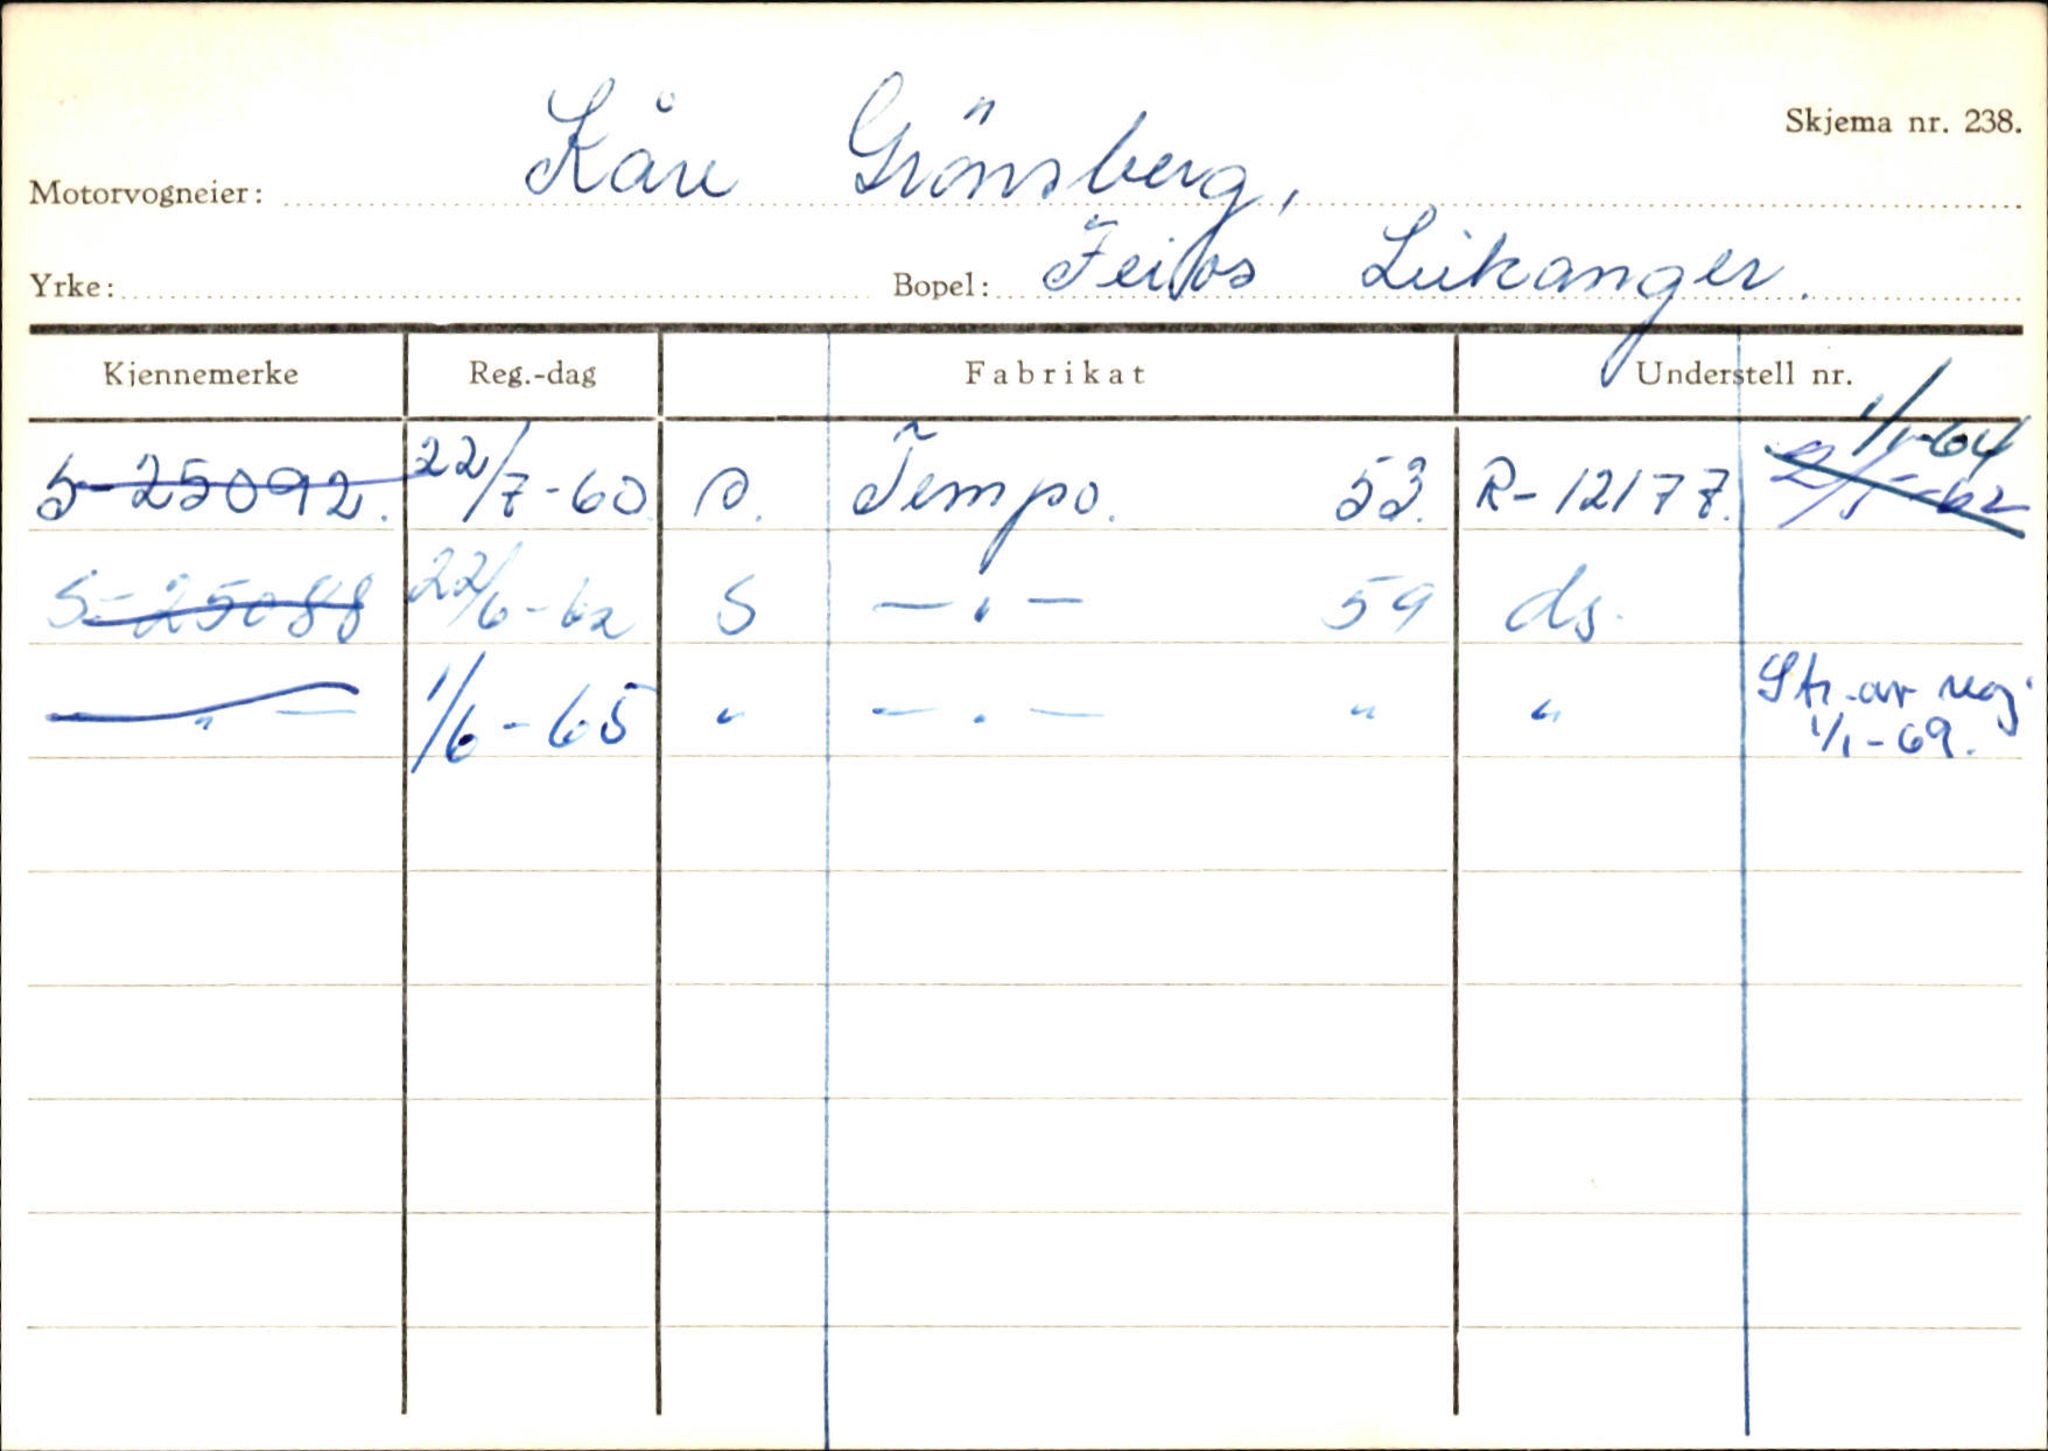 Skjema nr. 238.
Motorvogneier: Kåre Grönsberg,
Yrke: Bopel: Feios Leikanger.
Kjennemerke Reg.-dag Fabrikat Understell nr.
1/1-64
S-25092. 22/7-60 S. Tempo. 53. R-12177. 2/5-62
S-25088 22/6-62 S —"— 59 ds.
—"— 1/6-65 " —"— " " Str. av reg.
1/1-69.